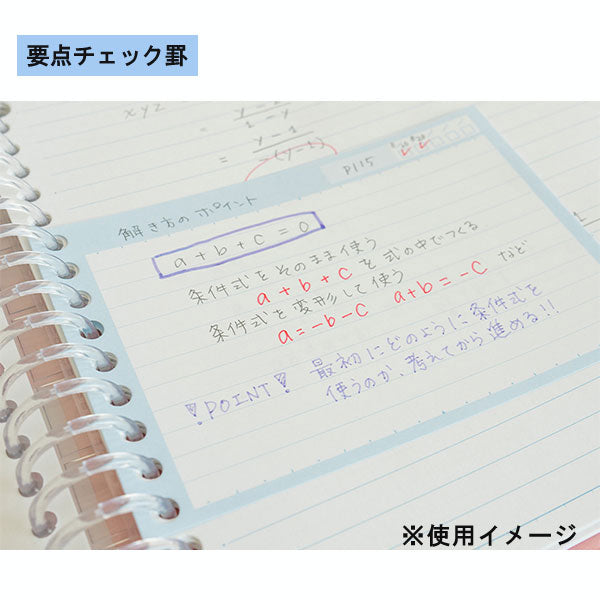 要点チェック罫
xyz
= y-2
1-y
= y-1
-(y-1)
P115
解き方のポイント
a+b+c=0
条件式をそのまま使う
a+b+cを式の中でつくる
条件式を変形して使う
a=-b-c a+b=-c など
!POINT! 最初にどのように条件式を
使うのか、考えてから進める!!
※使用イメージ